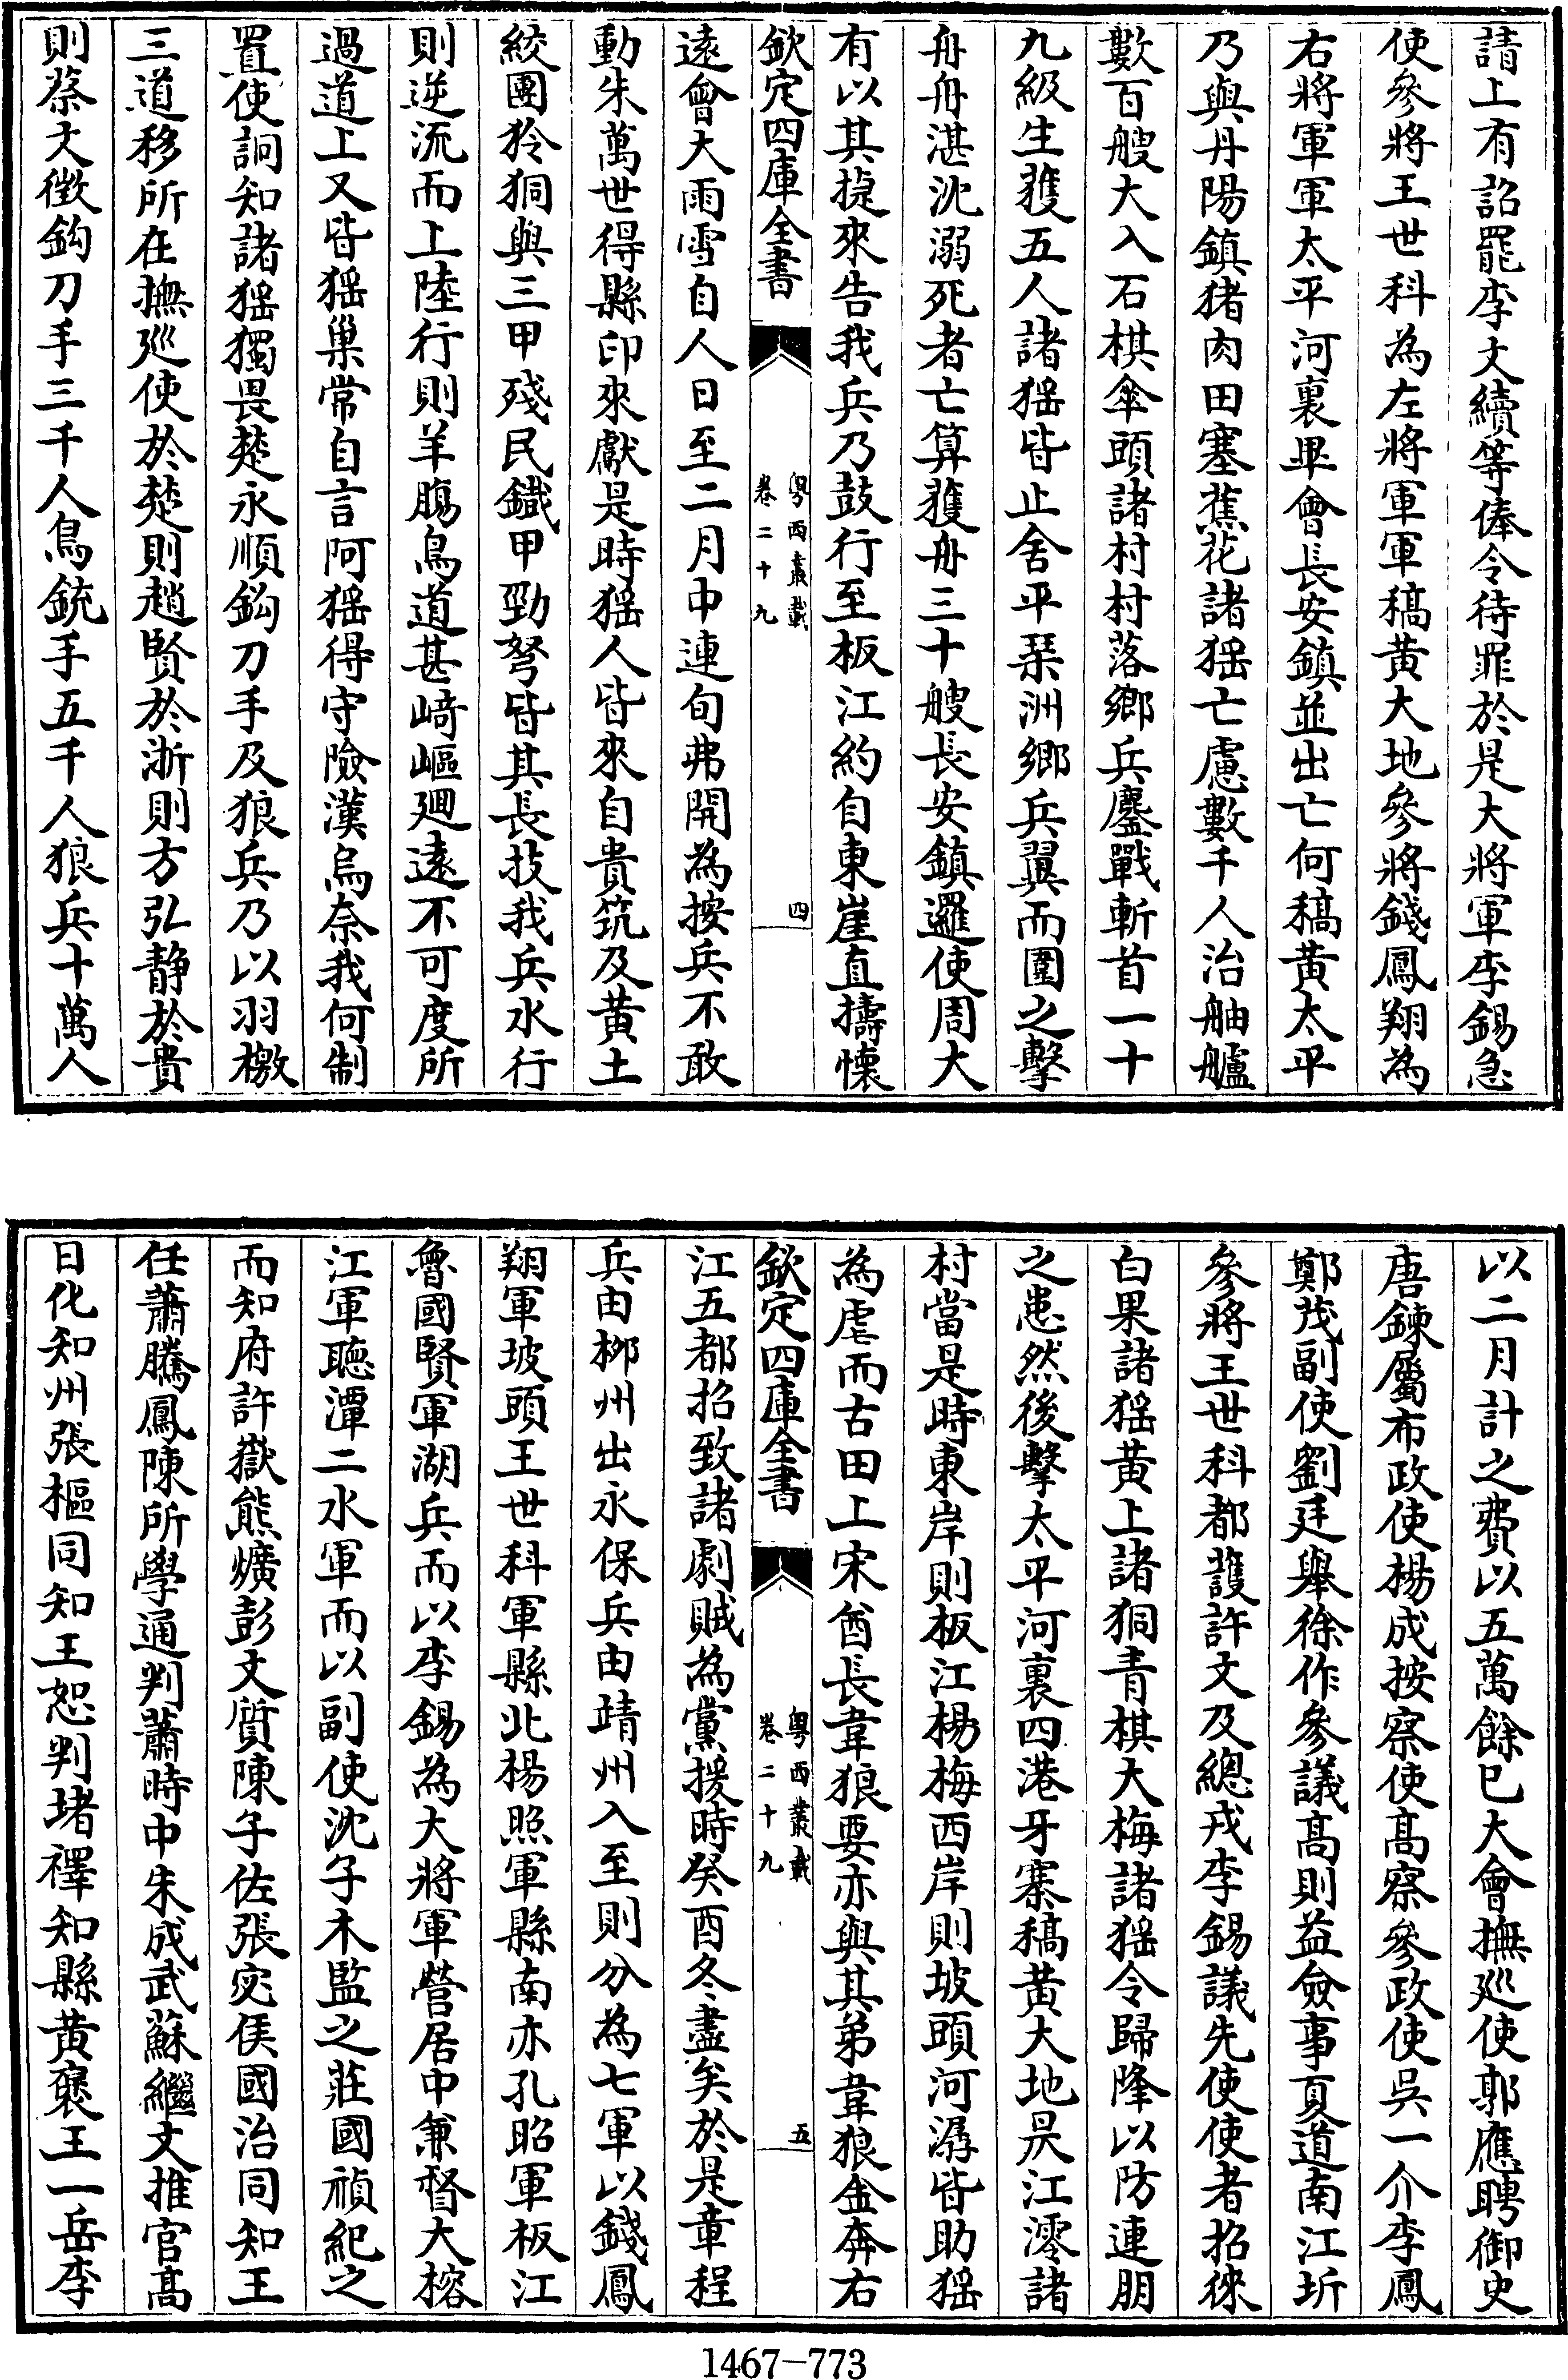 請上有詔罷李文續等俸令待罪於是大將軍李錫急
使參將王世科為左將軍軍稿黃大地參將錢鳳翔為
右將軍軍太平河裏畢會長安鎮並出亡何稿黃太平
乃與丹陽鎮猪肉田塞蕉花諸猺亡慮數千人治舳艫
數百艘大入石棋傘頭諸村村落鄉兵鏖戰斬首一十
九級生獲五人諸猺皆止舍平琹洲鄉兵翼而圍之擊
舟舟湛沈溺死者亡算獲舟三十艘長安鎮邏使周大
有以其捷來告我兵乃鼓行至板江約自東崖直擣懷
欽定四庫全書
粵西叢載
卷二十九
四
遠會大雨雪自人日至二月中連旬弗開為按兵不敢
動朱萬世得縣印來獻是時猺人皆來自貴筑及黃土
絞團狑狪與三甲殘民鐵甲勁弩皆其長技我兵水行
則逆流而上陸行則羊腸鳥道甚﨑嶇廻遠不可度所
過道上又皆猺巢常自言阿猺得守險漢烏奈我何制
置使詗知諸猺獨畏楚永順鈎刀手及狼兵乃以羽檄
三道移所在撫廵使於楚則趙賢於浙則方弘靜於貴
則蔡文徵鈎刀手三千人鳥銃手五千人狼兵十萬人
以二月計之費以五萬餘已大會撫廵使郭應聘御史
唐鍊屬布政使楊成按察使髙察參政使吳一介李鳳
鄭茂副使劉廷舉徐作參議髙則益僉事夏道南江圻
參將王世科都護許文及總戎李錫議先使使者招徠
白果諸猺黃上諸狪青棋大梅諸猺令歸降以防連朋
之患然後擊太平河裏四港牙寨稿黃大地昃江澪諸
村當是時東岸則板江楊梅西岸則坡頭河潺皆助猺
為虐而古田上宋酋長韋狼要亦與其弟韋狼金奔右
欽定四庫全書
粵西叢載
卷二十九
五
江五都招致諸劇賊為黨援時癸酉冬盡矣於是章程
兵由栁州出永保兵由靖州入至則分為七軍以錢鳳
翔軍坡頭王世科軍縣北楊照軍縣南亦孔昭軍板江
魯國賢軍湖兵而以李錫為大將軍營居中兼督大榕
江軍聽潭二水軍而以副使沈子木監之莊國禎紀之
而知府許嶽熊爌彭文質陳子佐張宓侯國治同知王
任蕭騰鳳陳所學通判蕭時中朱成武蘇繼文推官髙
日化知州張樞同知王恕判堵禪知縣黃褒王一岳李
1467－773